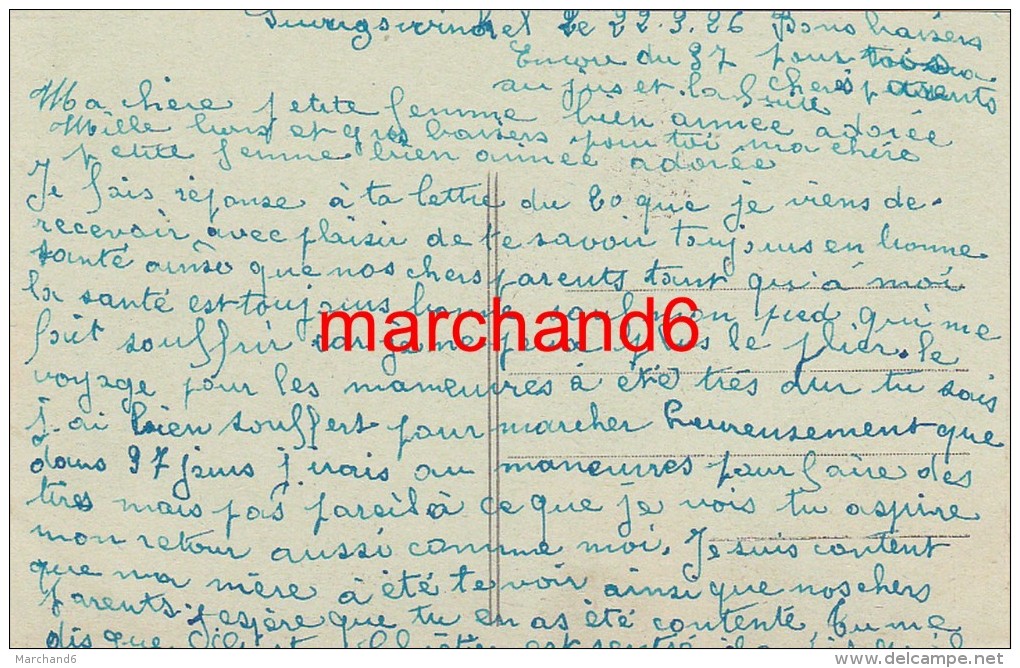 Le 22.3.26 Bons baisers
Encore du 37 pour toi
au jus et la chers parents
Ma chère petite femme bien aimée adorée
Mille bons et gros baisers pour toi ma chère
petite femme bien aimée adorée
Je fais réponse à ta lettre du 20 que je viens de
recevoir avec plaisir de te savoir toujours en bonne
santé ainsi que nos chers parents tant qu'à moi
la santé est toujours bonne sauf mon pied qui me
fait souffrir car je ne peux plus le plier. le
voyage pour les manœuvres à été très dur tu sais
j.ai bien souffert pour marcher heureusement que
dans 37 jours j.irais au manœuvres pour faire des
tirs mais pas pareil à ce que je vois tu aspire
mon retour aussi comme moi. Je suis content
que ma mère à été te voir ainsi que nos chers
parents. j.espère que tu en as été contente tu me
dis que
marchand6
Marchand6
delcampe.net